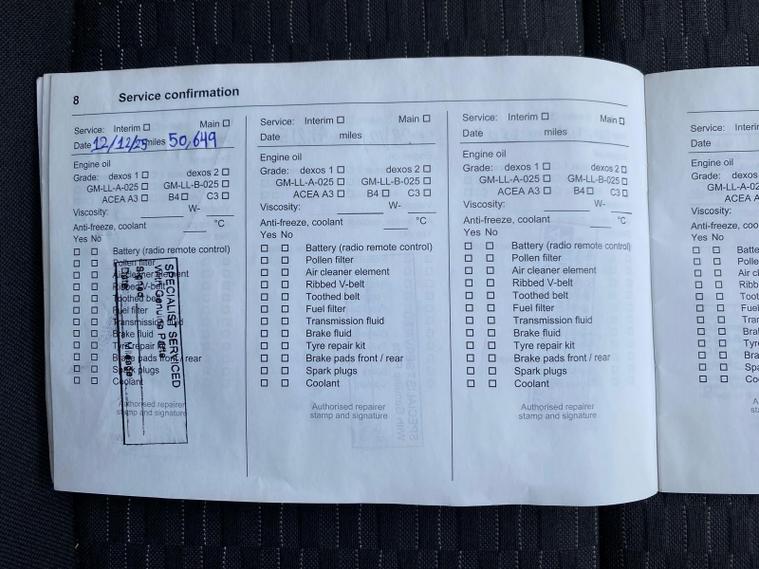 8 Service confirmation
Service: Interim Main
Date 12/12/25 miles 50,649
Engine oil
Grade: dexos 1 dexos 2
GM-LL-A-025 GM-LL-B-025
ACEA A3 B4 C3
Viscosity: W-
Anti-freeze, coolant °C
Yes No
Battery (radio remote control)
Pollen filter
Air cleaner element
Ribbed V-belt
Toothed belt
Fuel filter
Transmission fluid
Brake fluid
Tyre repair kit
Brake pads front / rear
Spark plugs
Coolant
Authorised repairer
stamp and signature
SPECIALIST SERVICED
With Genuine Parts
Service: Interim Main
Date miles
Engine oil
Grade: dexos 1 dexos 2
GM-LL-A-025 GM-LL-B-025
ACEA A3 B4 C3
Viscosity: W-
Anti-freeze, coolant °C
Yes No
Battery (radio remote control)
Pollen filter
Air cleaner element
Ribbed V-belt
Toothed belt
Fuel filter
Transmission fluid
Brake fluid
Tyre repair kit
Brake pads front / rear
Spark plugs
Coolant
Authorised repairer
stamp and signature
Service: Interim Main
Date miles
Engine oil
Grade: dexos 1 dexos 2
GM-LL-A-025 GM-LL-B-025
ACEA A3 B4 C3
Viscosity: W-
Anti-freeze, coolant °C
Yes No
Battery (radio remote control)
Pollen filter
Air cleaner element
Ribbed V-belt
Toothed belt
Fuel filter
Transmission fluid
Brake fluid
Tyre repair kit
Brake pads front / rear
Spark plugs
Coolant
Authorised repairer
stamp and signature
Service:
Date
Engine oil
Grade:
Viscosity:
Anti-freeze,
Yes No